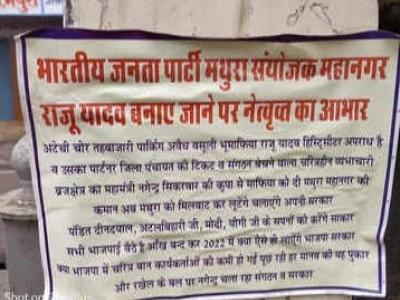 भारतीय जनता पार्टी मथुरा संयोजक महानगर
राजू यादव बनाए जाने पर नेत्वृत्व का आभार
अटेची चोर तहबाजारी पार्किंग अवैध वसूली भूमाफिया राजू यादव हिस्ट्रिसीटर अपराध है
व उसका पार्टनर जिला पंचायत की टिकट व संगठन बेचने वाला चरित्रहीन व्यभाचारी
ब्रजक्षेत्र का महामंत्री नगेन्द्र सिकरवार की कृपा से माफिया को दी मथुरा महानगर की
कमान अब मथुरा को मिलबाट कर लूटेंगे चलाएंगे अपनी सरकार
पंडित दीनदयाल, अटलबिहारी जी, मोदी, योगी जी के सपनों को करेंगे साकार
सभी भाजपाई बैठे है आँख बन्द कर 2022 में क्या ऐसे ही लाऐंगे भाजपा सरकार
क्या भाजपा में चरित्र वान कार्यकर्ताओं की कमी हो गई पूछ रही हा मानव की यह पुकार
और रखैल के बल पर नगेन्द्र चला रहा संगठन व सरकार
Shot on